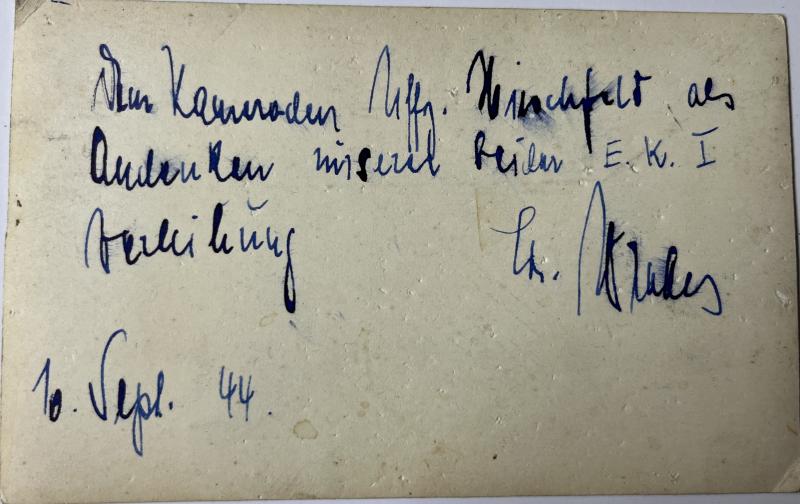 Dem Kameraden Uffz. Hirschfeld als
Andenken unserer beiden E. K. I
Verleihung
10. Sept. 44.